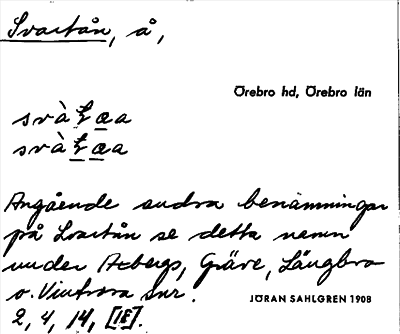 Svartån, å,
Örebro hd, Örebro län
svàꞭa̲a
svàꞭ̲a̲a
Angående andra benämningar
på Svartån se detta namn
under Axbergs, Gräve, Längbro
o. Vintrosa snr.
JÖRAN SAHLGREN 1908
2, 4, 14, [IF].